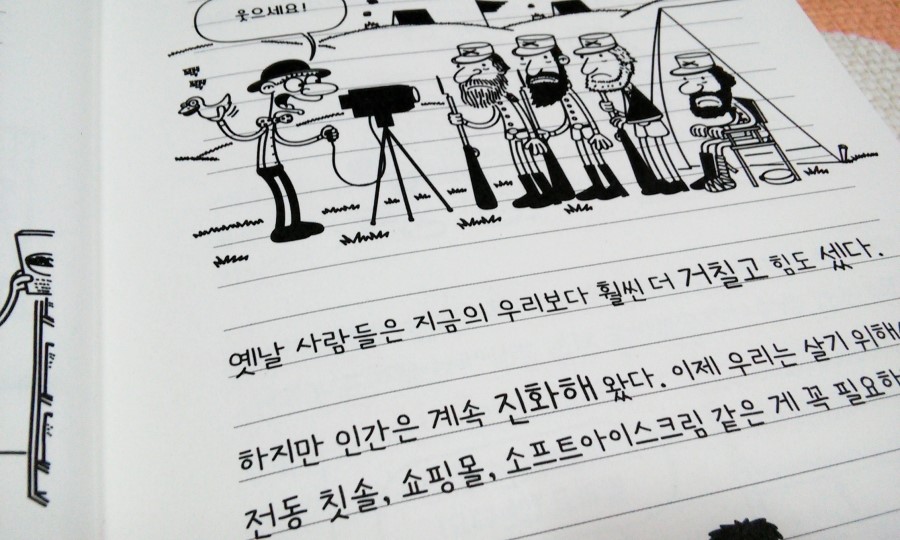 웃으세요!
옛날 사람들은 지금의 우리보다 훨씬 더 거칠고 힘도 셌다.
하지만 인간은 계속 진화해 왔다. 이제 우리는 살기 위해
전동 칫솔, 쇼핑몰, 소프트아이스크림 같은 게 꼭 필요하